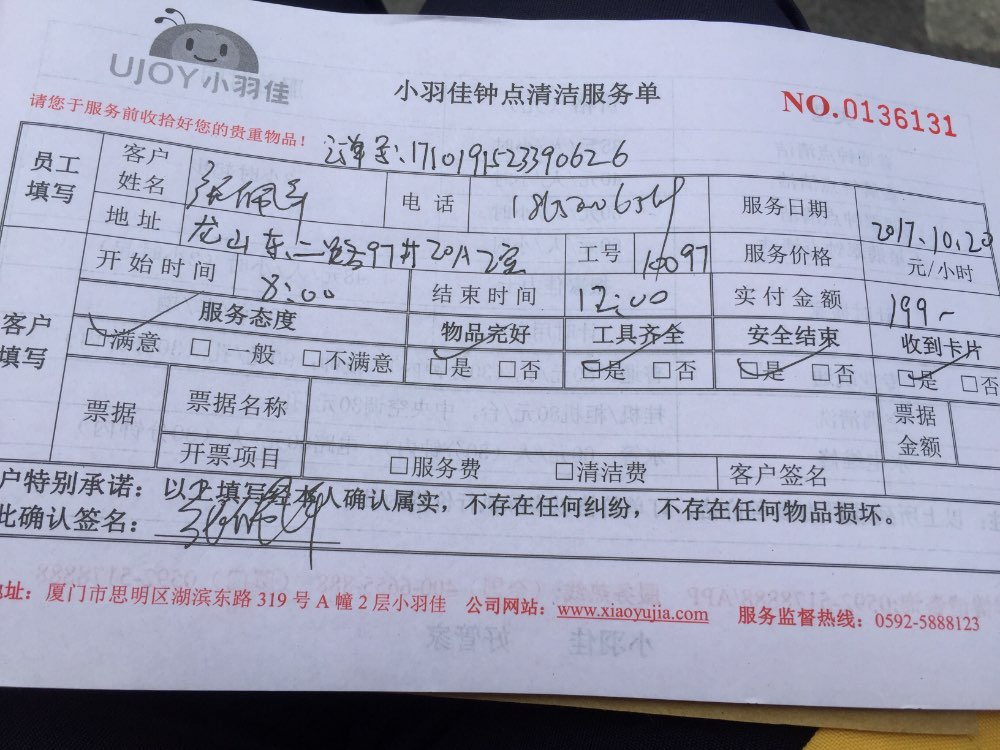 UJOY小羽佳
小羽佳钟点清洁服务单
NO.0136131
请您于服务前收拾好您的贵重物品！
订单号:1710191523390626
员工填写
客户姓名
电话
服务日期 2017.10.20
地址 龙山东二路97号20A2室
工号 10097
服务价格 元/小时
开始时间 8:00
结束时间 12:00
实付金额 199-
客户填写
服务态度
物品完好
工具齐全
安全结束
收到卡片
□满意 □一般 □不满意
□是 □否
□是 □否
□是 □否
□是 □否
票据
票据名称
票据金额
开票项目
□服务费 □清洁费
客户签名
户特别承诺：以上填写经本人确认属实，不存在任何纠纷，不存在任何物品损坏。
此确认签名：
地址：厦门市思明区湖滨东路 319 号 A 幢 2 层小羽佳 公司网站：www.xiaoyujia.com 服务监督热线：0592-5888123